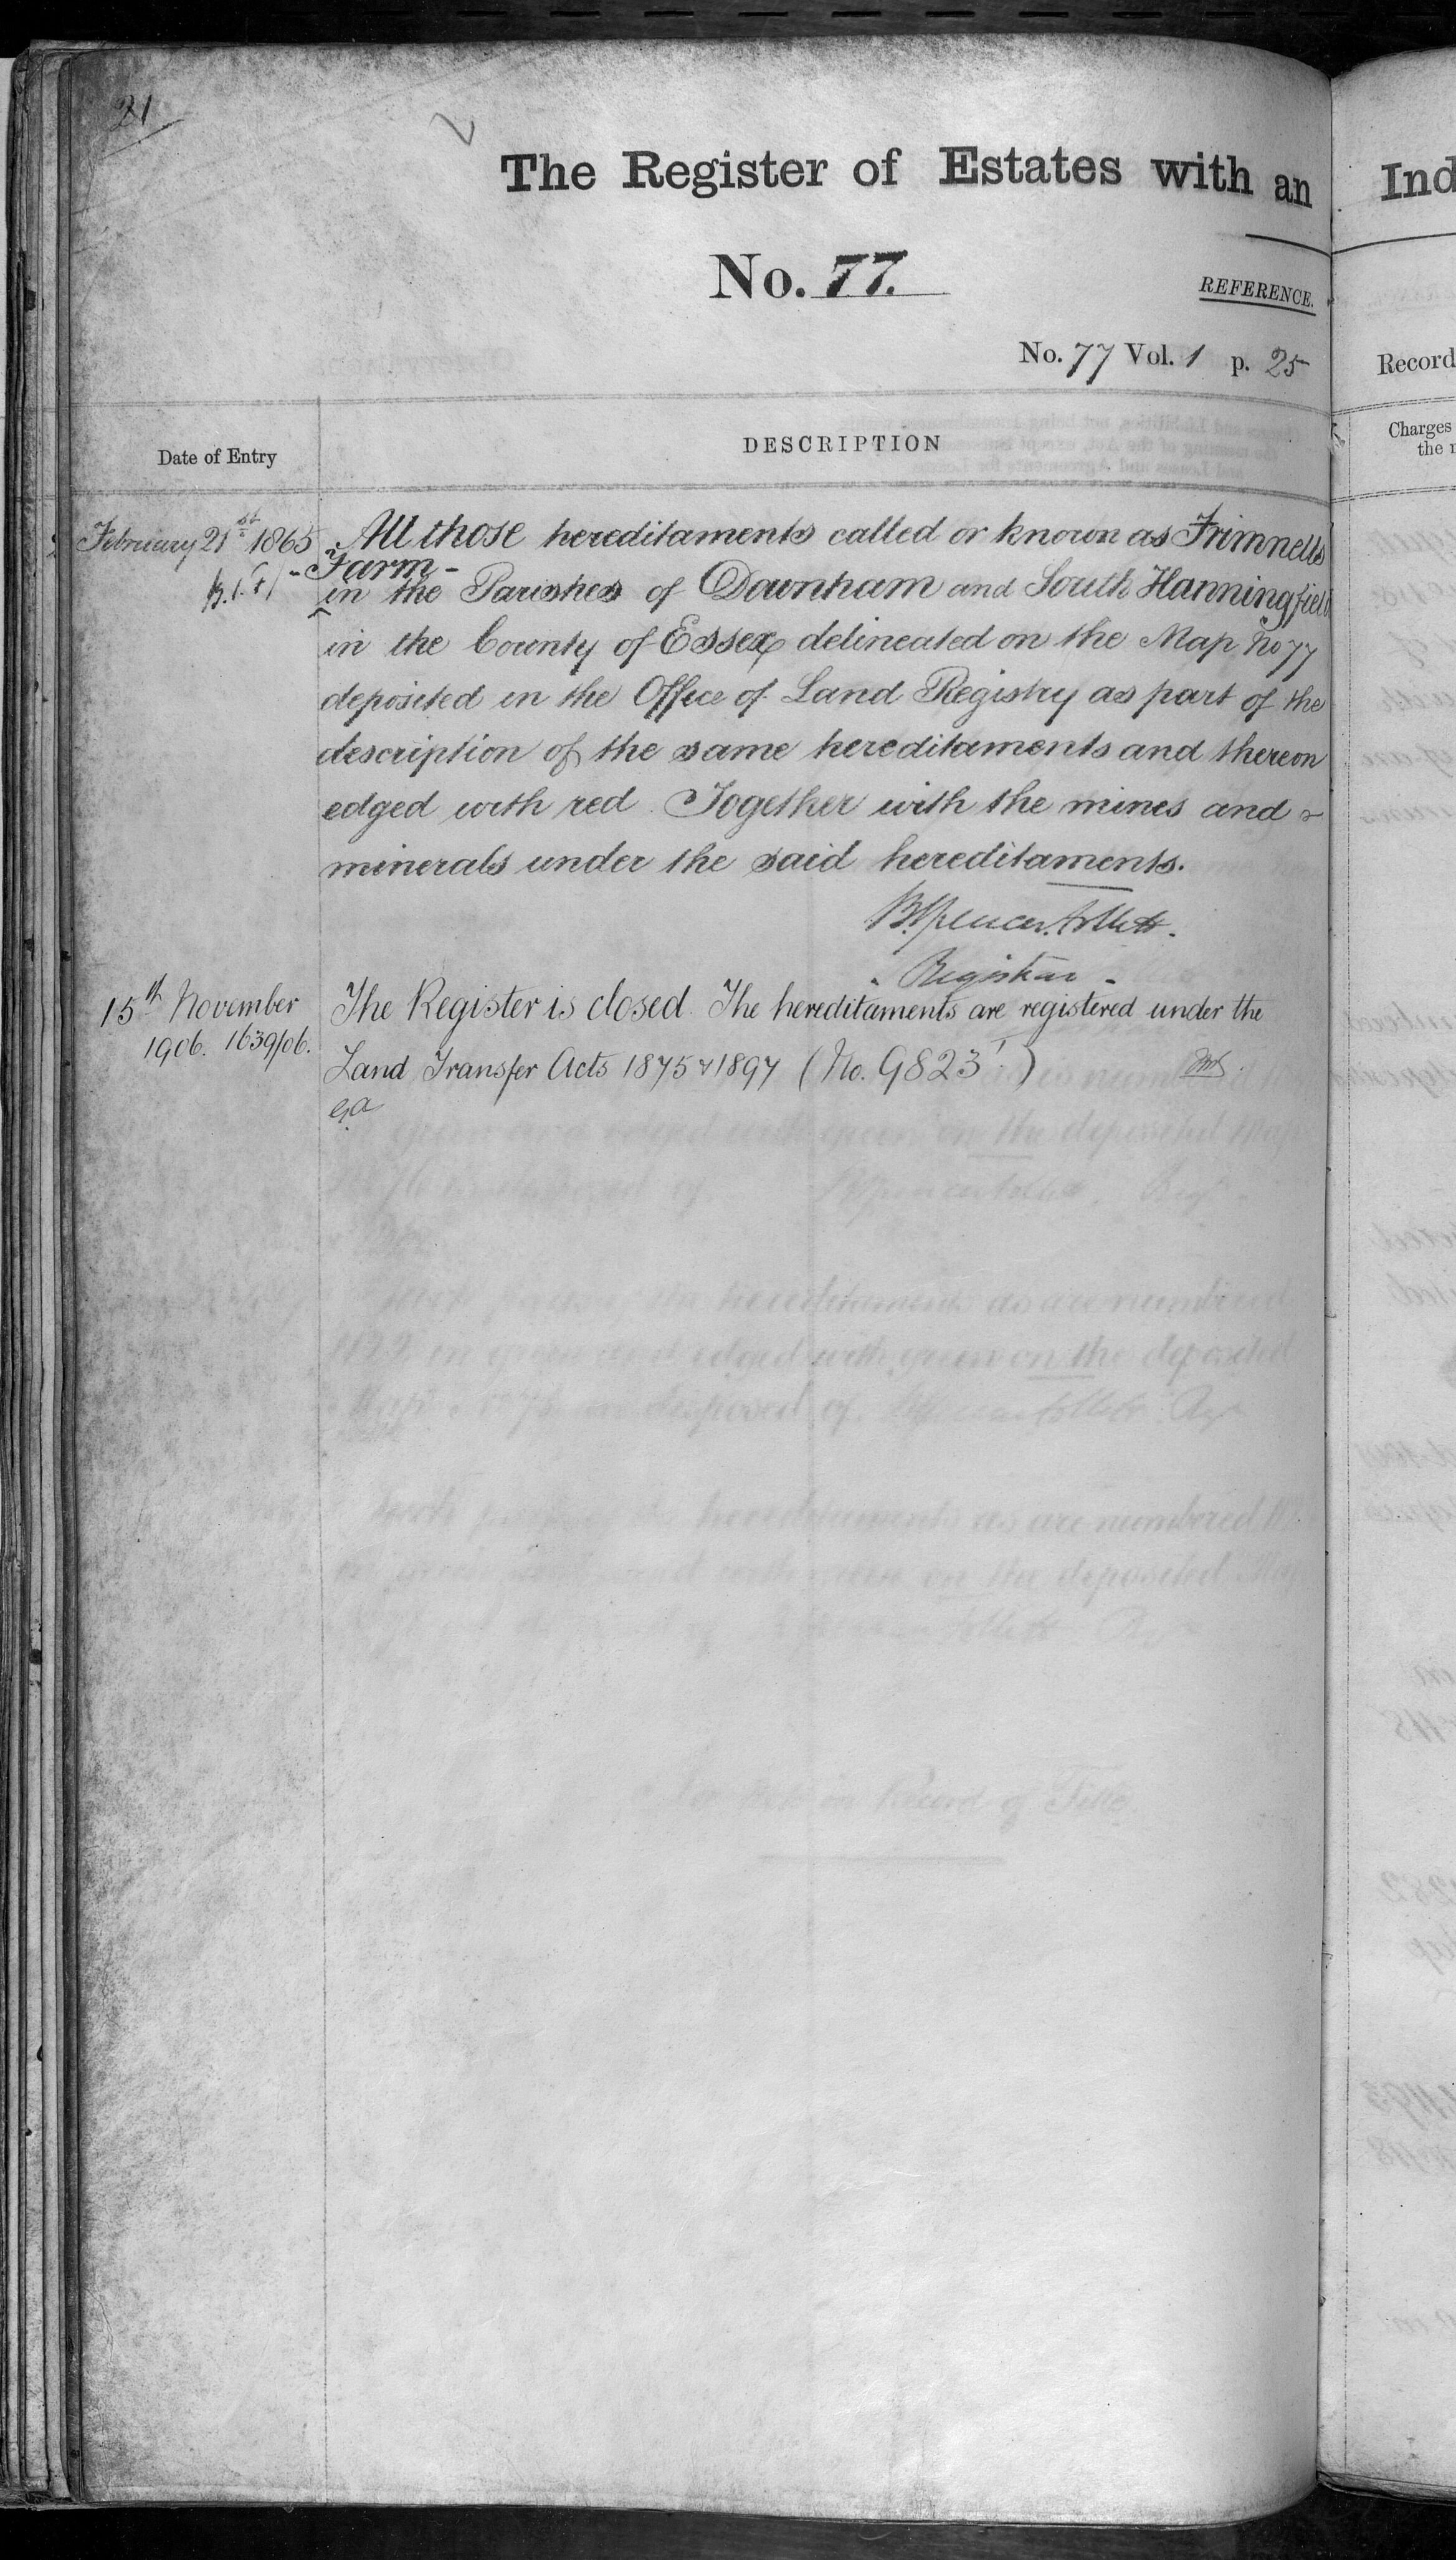 21
The Register of Estates with an
Ind
No. 77.
REFERENCE.
No. 77 Vol. 1 p. 25
Record
Date of Entry
DESCRIPTION
Charges
the
February 21st 1865
All those hereditaments called or known as Frimnells
- Farm -
in the Parishes of Downham and South Hanningfield
in the County of Essex delineated on the Map No 77
deposited in the Office of Land Registry as part of the
description of the same hereditaments and thereon
edged with red. Together with the mines and
minerals under the said hereditaments.
B. Spencer Follett.
Registrar -
15th November
1906. 1639/06.
The Register is closed. The hereditaments are registered under the
Land Transfer Acts 1875 & 1897 (No. 9823)